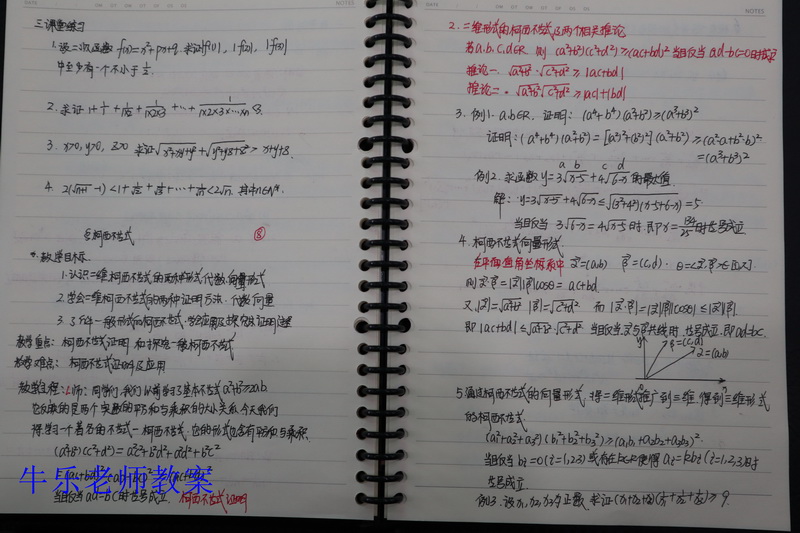 三.课堂练习
1.设二次函数 f(x)=x²+px+q. 求证|f(1)|, |f(2)|, |f(3)|
中至少有一个不小于1/2.
2.求证 1+1/1+1/1×2+1/1×2×3+…+1/1×2×3×…×n<3.
3. x>0, y>0, z>0 求证√x²+xy+y²+√y²+yz+z²>x+y+z.
4. 2(√n+1-1)<1+1/√2+1/√3+…+1/√n<2√n. 其中n∈N*.
柯西不等式 ⑧
一.教学目标
1.认识二维柯西不等式的两种形式 代数.向量形式
2.学会二维柯西不等式的两种证明方法.代数.向量
教学重点: 柯西不等式证明
教学难点: 柯西不等式证明及应用
教学过程: 1.师:同学们,我们以前学习了基本不等式a²+b²≥2ab.
它反映的是两个实数的平方和与乘积的大小关系.今天我们
将学习一个著名的不等式—柯西不等式.它的形式也含有平方和与乘积.
(a²+b²)(c²+d²)=a²c²+b²d²+a²d²+b²c²
当且仅当ad=bc时等号成立. 柯西不等式证明
牛乐老师教案
NOTES
2.二维形式的柯西不等式及两个相关推论
若a.b.c.d∈R 则 (a²+b²)(c²+d²)≥(ac+bd)² 当且仅当ad-bc=0时成立
推论一. √a²+b²·√c²+d²≥|ac+bd|
推论二. √a²+b²√c²+d²≥|ac|+|bd|
3.例1. a.b∈R. 证明: (a⁴+b⁴)(a²+b²)≥(a³+b³)²
证明:(a⁴+b⁴)(a²+b²)=[(a²)²+(b²)²](a²+b²)≥(a²·a+b²·b)²
=(a³+b³)²
a b c d
例2.求函数y=3√x-5+4√6-x的最大值
解: y=3√x-5+4√6-x≤√(3²+4²)(x-5+6-x)=5
当且仅当 3√6-x=4√x-5时.即x=134/25时等号成立
4.柯西不等式向量形式.
在平面直角坐标系中 α=(a,b) β=(c,d). θ=<α,β>∈[0,π].
则α·β=|α||β|cosθ=ac+bd.
又|α|=√a²+b² |β|=√c²+d². 而|α·β|=|α||β||cosθ|≤|α||β|.
即|ac+bd|≤√a²+b²·√c²+d² 当且仅当α与β共线时.等号成立.即ad=bc.
y β=(c,d)
α=(a,b)
5.通过柯西不等式的向量形式,将二维形式推广到三维.得到三维形式
的柯西不等式.
(a₁²+a₂²+a₃²)(b₁²+b₂²+b₃²)≥(a₁b₁+a₂b₂+a₃b₃)².
当且仅当bᵢ=0(i=1,2,3)或存在k∈R使得aᵢ=kbᵢ(i=1,2,3)时
等号成立.
例3.设x₁,x₂,x₃为正数.求证(x₁+x₂+x₃)(1/x₁+1/x₂+1/x₃)≥9.